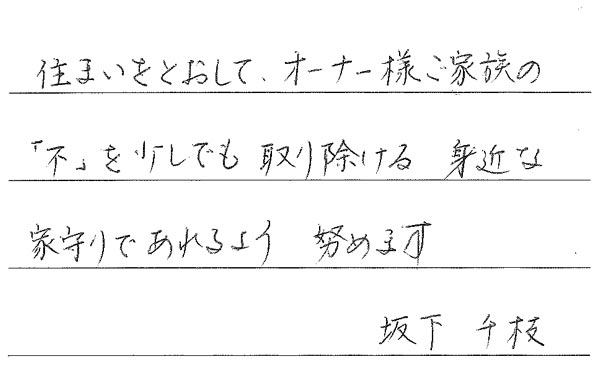 住まいをとおして、オーナー様ご家族の
「不」を少しでも 取り除ける 身近な
家守りであれるよう 努めます
坂下 千枝